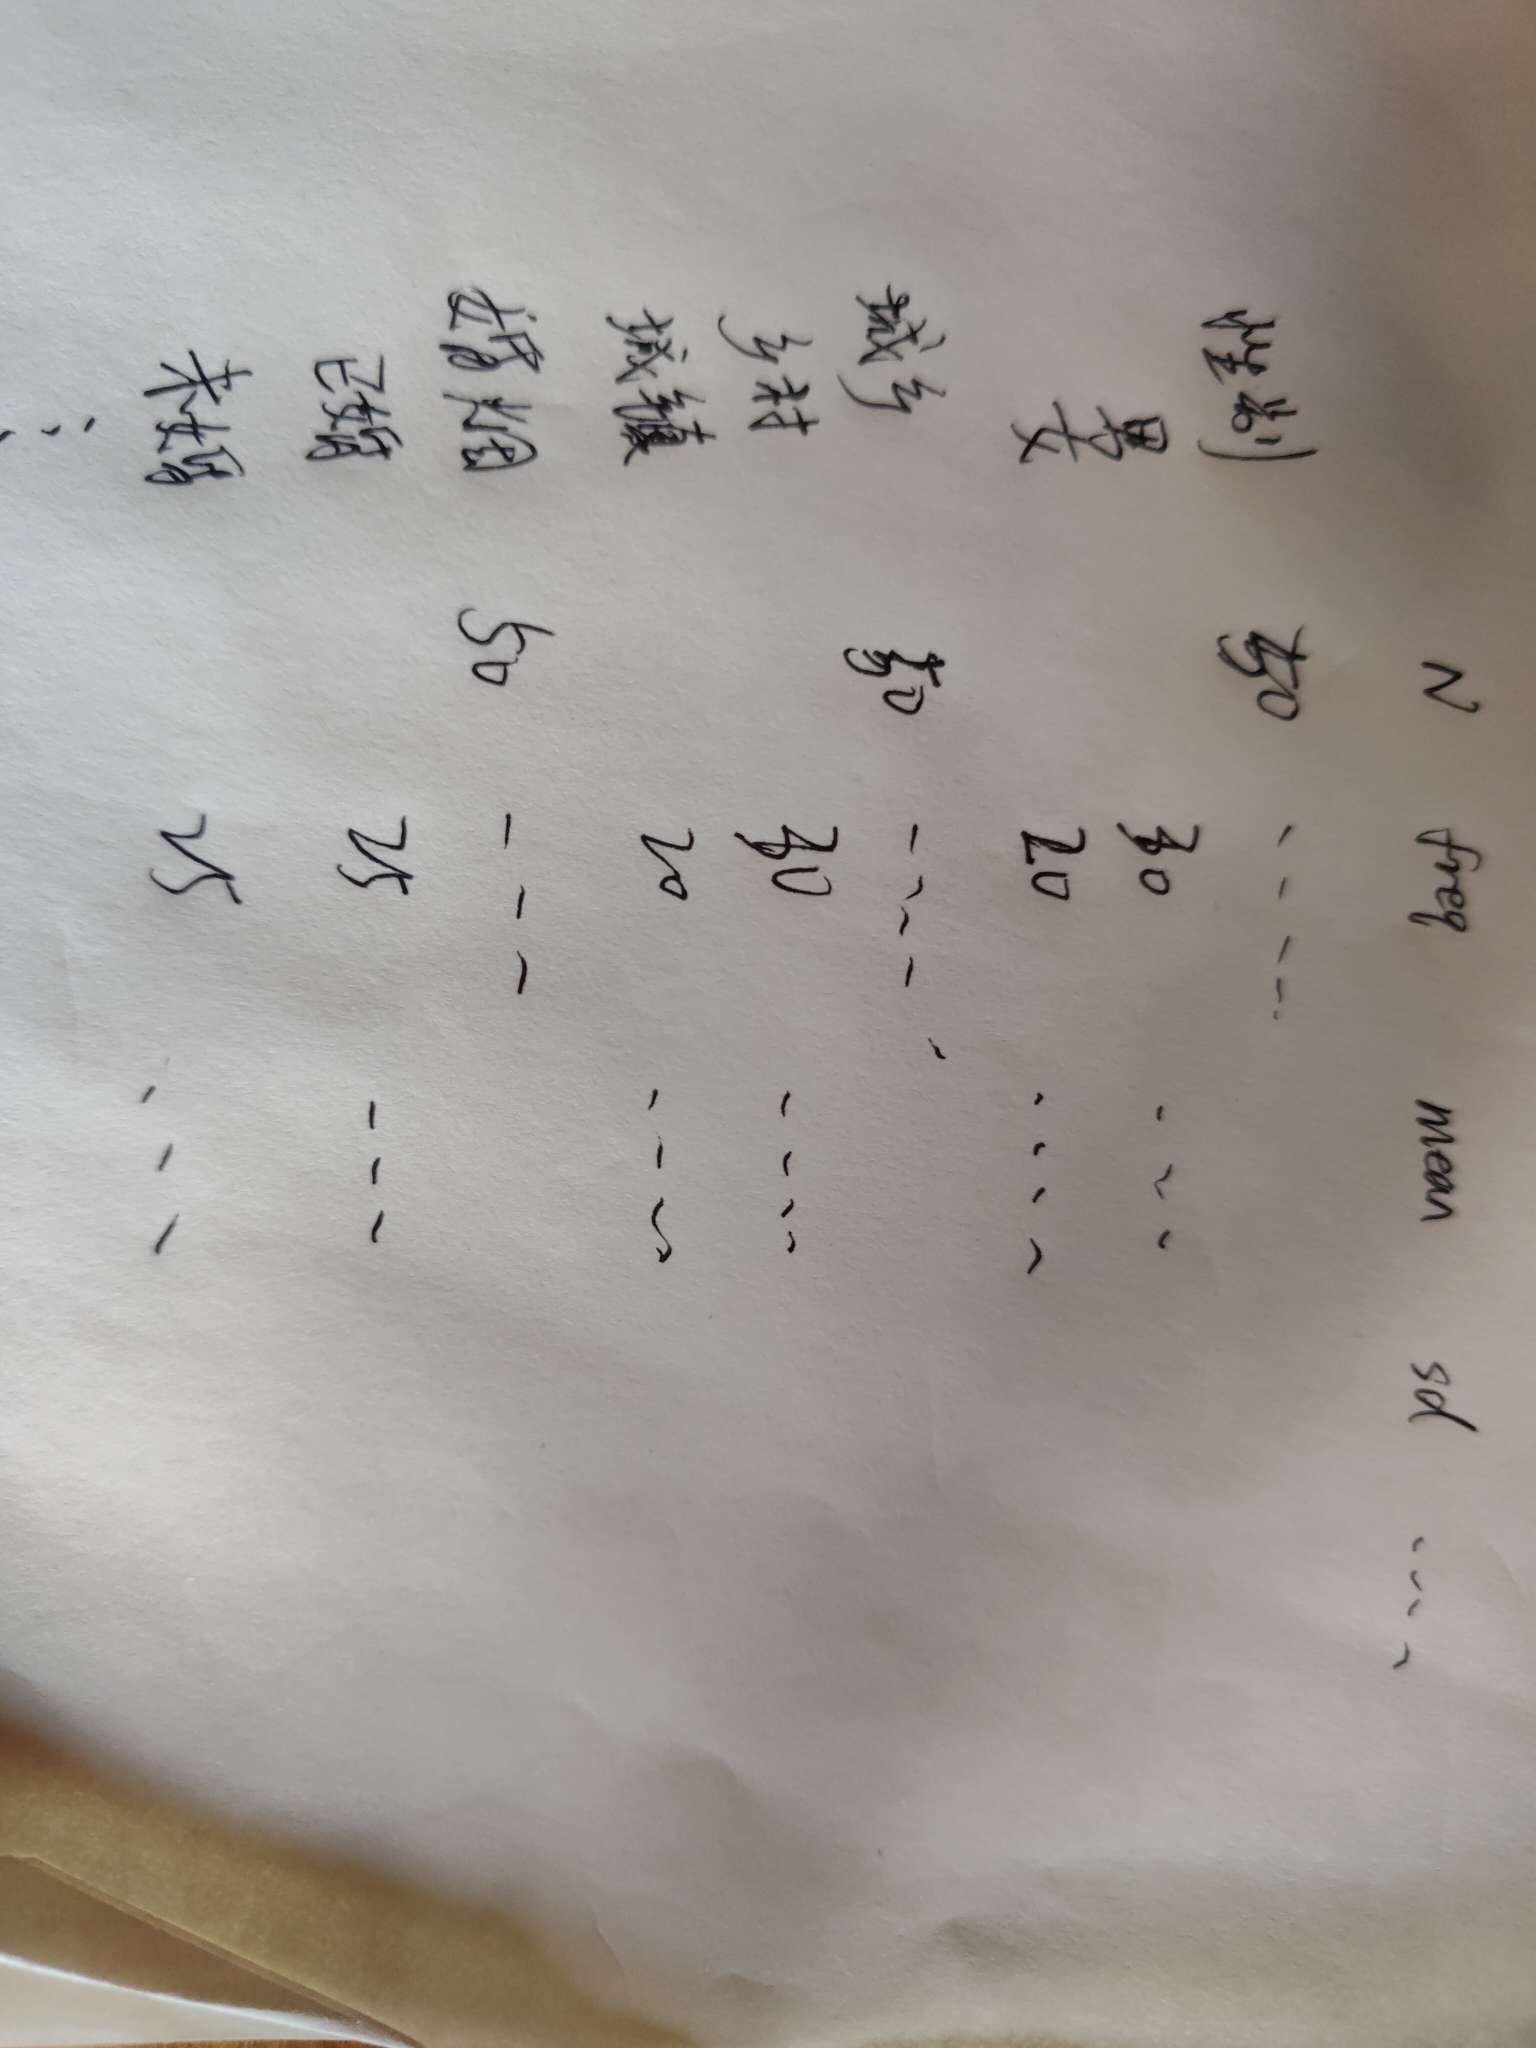 N freq mean sd ....
性别 50 ----
男 30 ---
女 20 ----
城乡 50 ----
乡村 30 ----
城镇 20 ---
婚姻 50 ---
已婚 25 ---
未婚 25 ---